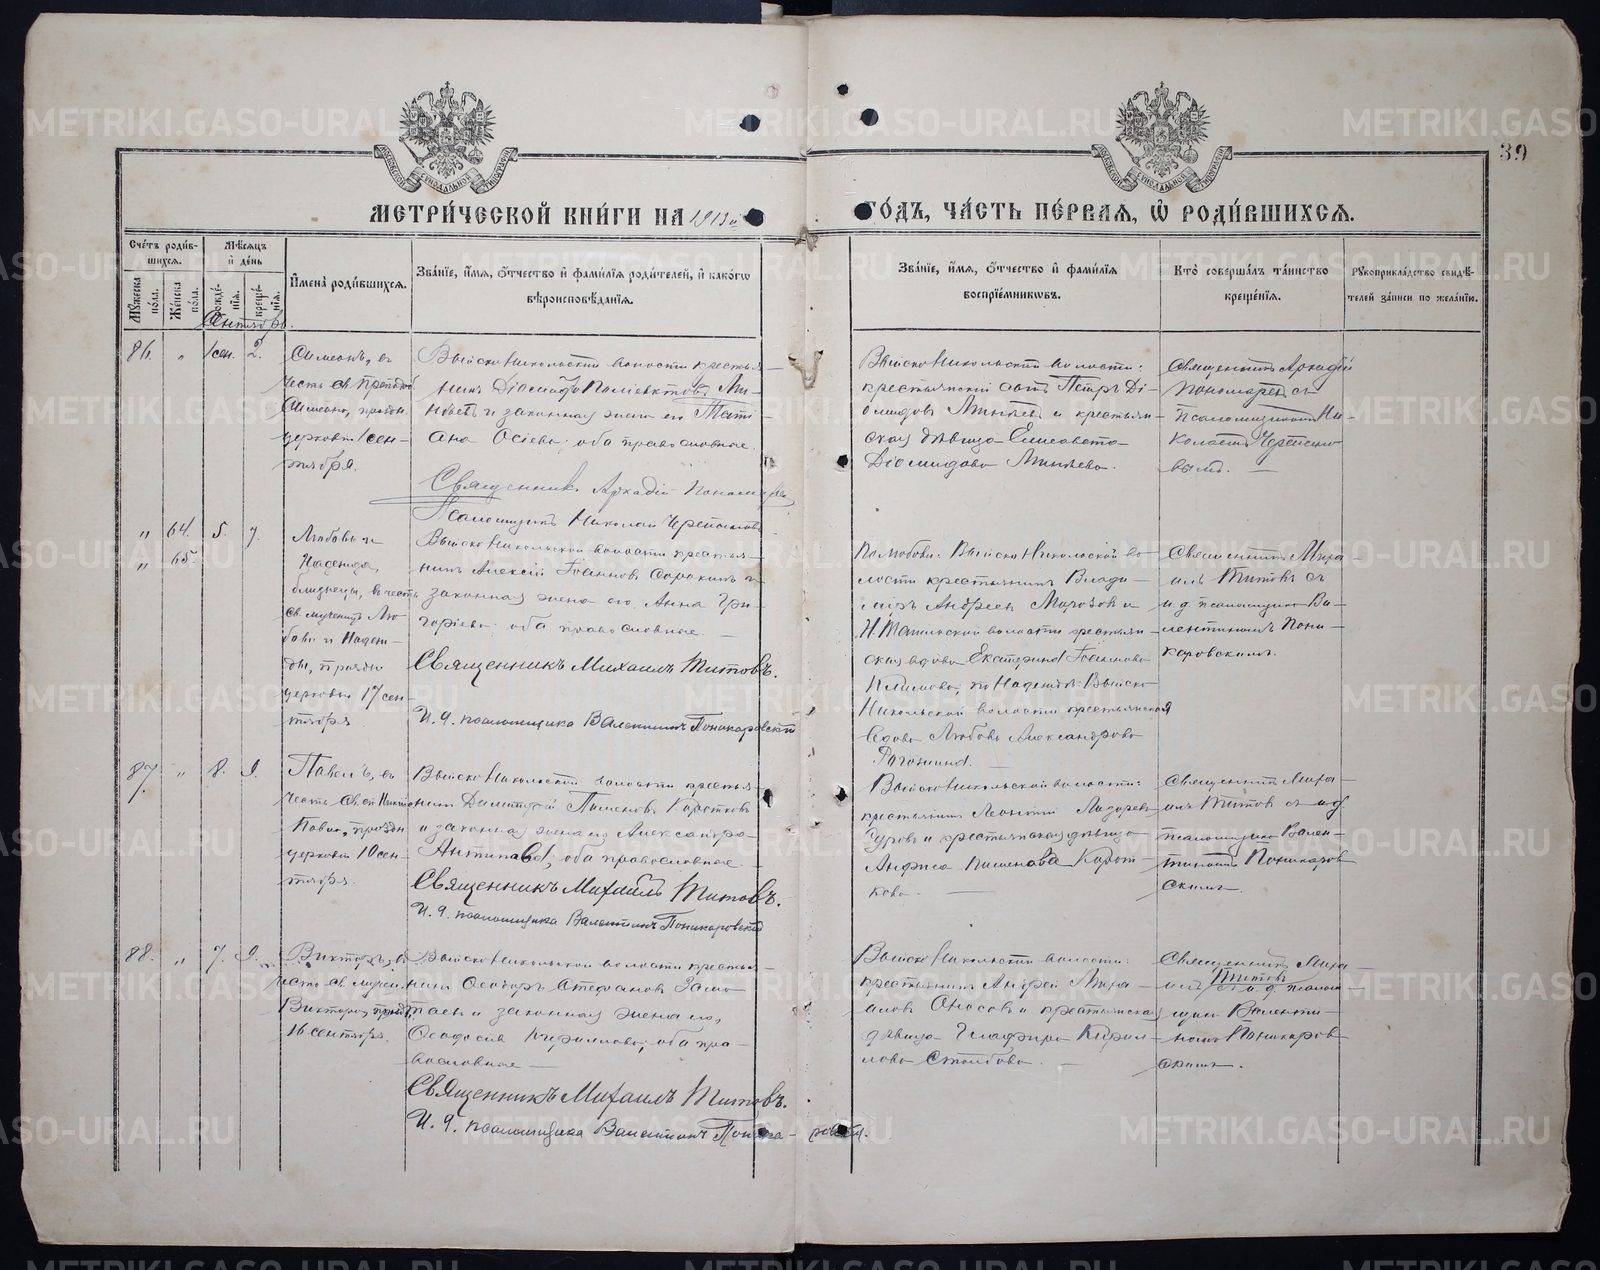 39
МЕТРИ́ЧЕСКОЙ КНИ́ГИ НА 1913й ГО́ДЪ, ЧА́СТЬ ПЕ́РВАѦ, Ѡ҆ РОДИ́ВШИХСѦ.
Сче́тъ роди́вшихсѧ.
Мꙋ́жеска по́ла.
Же́нска по́ла.
Мѣ́сѧцъ и҆ де́нь
рожде́нїѧ.
креще́нїѧ.
И҆мена̀ роди́вшихсѧ.
Зва́нїе, и҆́мѧ, ѻ҆́тчество и҆ фами́лїѧ роди́телей, и҆ како́гѡ
вѣроисповѣ́данїѧ.
Зва́нїе, и҆́мѧ, ѻ҆́тчество и҆ фами́лїѧ
воспрїе́мникѡвъ.
Кто̀ соверша́лъ та́инство
креще́нїѧ.
Рꙋкоприкла́дство свидѣ́-
телей за́писи по жела́нїю.
Сентябрь.
86. " 1 сен. 2.
Симеонъ, въ
честь св. преподоб.
Симеона, праздн.
церковью 1 сен-
тября.
Выйско Никольской волости крестья-
нинъ Діомидъ Поліевктовъ Ми-
нѣевъ и законная жена его Тати-
ана Осіева; оба православные.
Священникъ Аркадій Пономаревъ
Псаломщикъ Николай Черепановъ
Выйско Никольской волости:
крестьянскій сынъ Петръ Ді-
омидовъ Минѣевъ и крестьян-
ская дѣвица Елисавета
Діомидова Минѣева.
Священникъ Аркадій
Пономаревъ съ
псаломщикомъ Ни-
колаемъ Черепано-
вымъ.
" 64. 5. 7.
" 65.
Любовь и
Надежда,
близнецы, въ честь
св. мученицъ Лю-
бови и Надеж-
ды, праздн.
церковью 17 сен-
тября
Выйско Никольской волости крестья-
нинъ Алексій Іоанновъ Сорокинъ и
законная жена его Анна Гри-
горіева; оба православные.
Священникъ Михаилъ Титовъ.
И. д. псаломщика Валентинъ Поникаровскій
По Любови: Выйско Никольской во-
лости крестьянинъ Влади-
міръ Андреевъ Морозовъ и
Н Тагильской волости крестьян-
ская вдова Екатерина Іоаннова
Климова; по Надеждѣ: Выйско
Никольской волости крестьянская
вдова Любовь Александрова
Рагозина.
Священникъ Миха-
илъ Титовъ съ
и. д. псаломщика Ва-
лентиномъ Пони-
каровскимъ.
87. " 8. 9.
Павелъ, въ
церковью 10 сен-
тября.
Выйско Никольской волости крестья-
нинъ Димитрій Пименовъ Коротковъ
и законная жена его Александра
Антипова, оба православные
Священникъ Михаилъ Титовъ.
И. д. псаломщика Валентинъ Поникаровскій
Выйско Никольской волости:
крестьянинъ Леонтій Лазаревъ
и крестьянская дѣвица
Анфиса Пименова Корот-
кова.
Священникъ Миха-
илъ Титовъ съ и. д.
псаломщика Вален-
тиномъ Поникаров-
скимъ.
88. " 7. 9.
Викторъ, въ
честь св. мучен.
Виктора, праздн.
16 сентября.
Выйско Никольской волости крестья-
нинъ Ѳеодоръ Стефановъ Замо-
таевъ и законная жена его,
Ѳеодосія Кириллова; оба пра-
вославные
Священникъ Михаилъ Титовъ.
И. д. псаломщика Валентинъ Поникаровскій.
Выйско Никольской волости:
крестьянинъ Андрей Миха-
иловъ Оносовъ и крестьянская
дѣвица Глафира Кирил-
лова Столбова.
Священникъ Миха-
илъ Титовъ съ и. д. псалом-
щика Валенти-
номъ Поникаров-
скимъ.